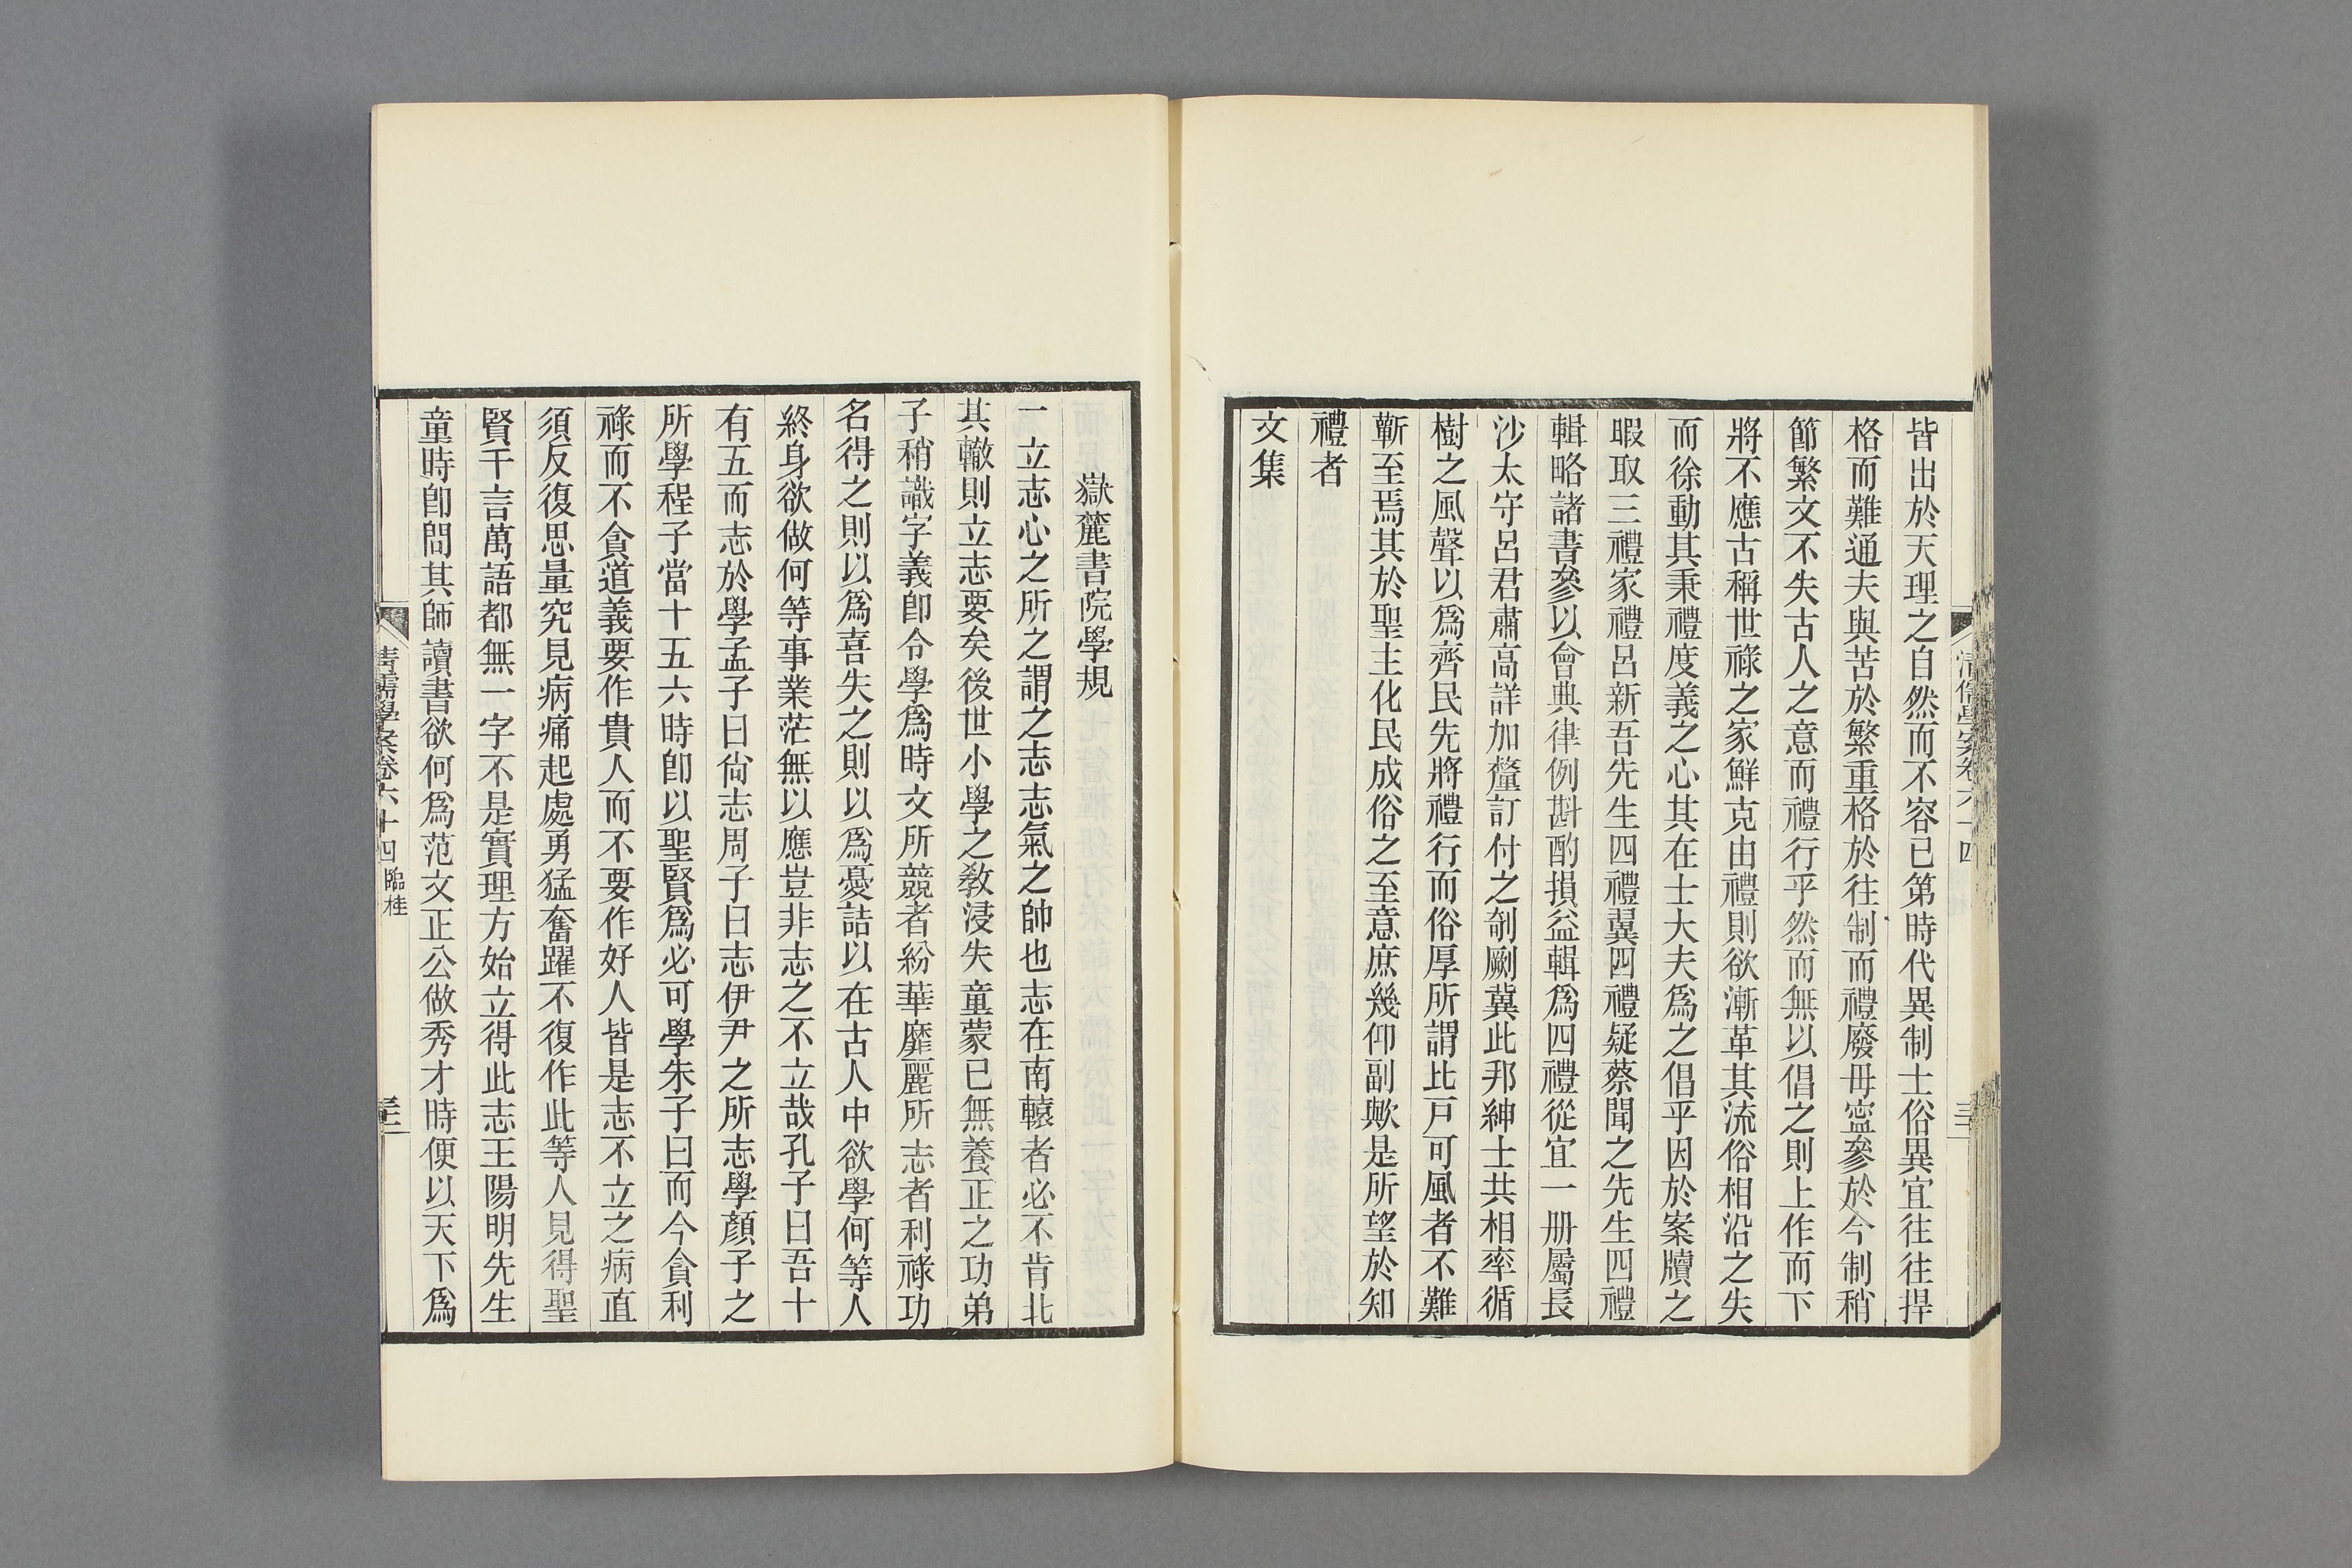 皆出於天理之自然而不容已第時代異制士俗異宜往往捍
格而難通夫與苦於繁重格於往制而禮廢毋寍參於今制稍
節繁文不失古人之意而禮行乎然而無以倡之則上作而下
將不應古稱世祿之家鮮克由禮則欲漸革其流俗相沿之失
而徐動其秉禮度義之心其在士大夫爲之倡乎因於案牘之
暇取三禮家禮呂新吾先生四禮翼四禮疑蔡聞之先生四禮
輯略諸書參以會典律例斟酌損益輯爲四禮從宜一册屬長
沙太守呂君肅高詳加釐訂付之剞劂冀此邦紳士共相率循
樹之風聲以爲齊民先將禮行而俗厚所謂比戸可風者不難
蘄至焉其於聖主化民成俗之至意庶幾仰副歟是所望於知
禮者
文集
嶽麓書院學規
一立志心之所之謂之志志氣之帥也志在南轅者必不肯北
其轍則立志要矣後世小學之敎浸失童蒙已無養正之功弟
子稍識字義卽令學爲時文所競者紛華靡麗所志者利祿功
名得之則以爲喜失之則以爲憂詰以在古人中欲學何等人
終身欲做何等事業茫無以應豈非志之不立哉孔子曰吾十
有五而志於學孟子曰尙志周子曰志伊尹之所志學顏子之
所學程子當十五六時卽以聖賢爲必可學朱子曰而今貪利
祿而不貪道義要作貴人而不要作好人皆是志不立之病直
須反復思量究見病痛起處勇猛奮躍不復作此等人見得聖
賢千言萬語都無一字不是實理方始立得此志王陽明先生
童時卽問其師讀書欲何爲范文正公做秀才時便以天下爲
清儒學案卷六十四 臨桂